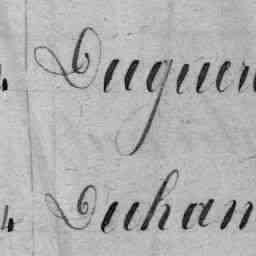 Duguer
4 Duham